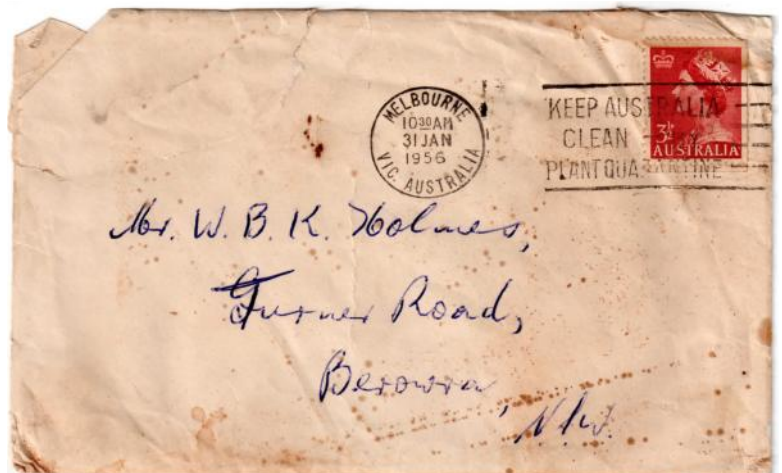 MELBOURNE
10 30 AM
31 JAN
1956
VIC. AUSTRALIA
KEEP AUSTRALIA
CLEAN
PLANT QUARANTINE
3½
AUSTRALIA
Mr. W. B. K. Holmes,
Turner Road,
Berowra,
N.S.W.